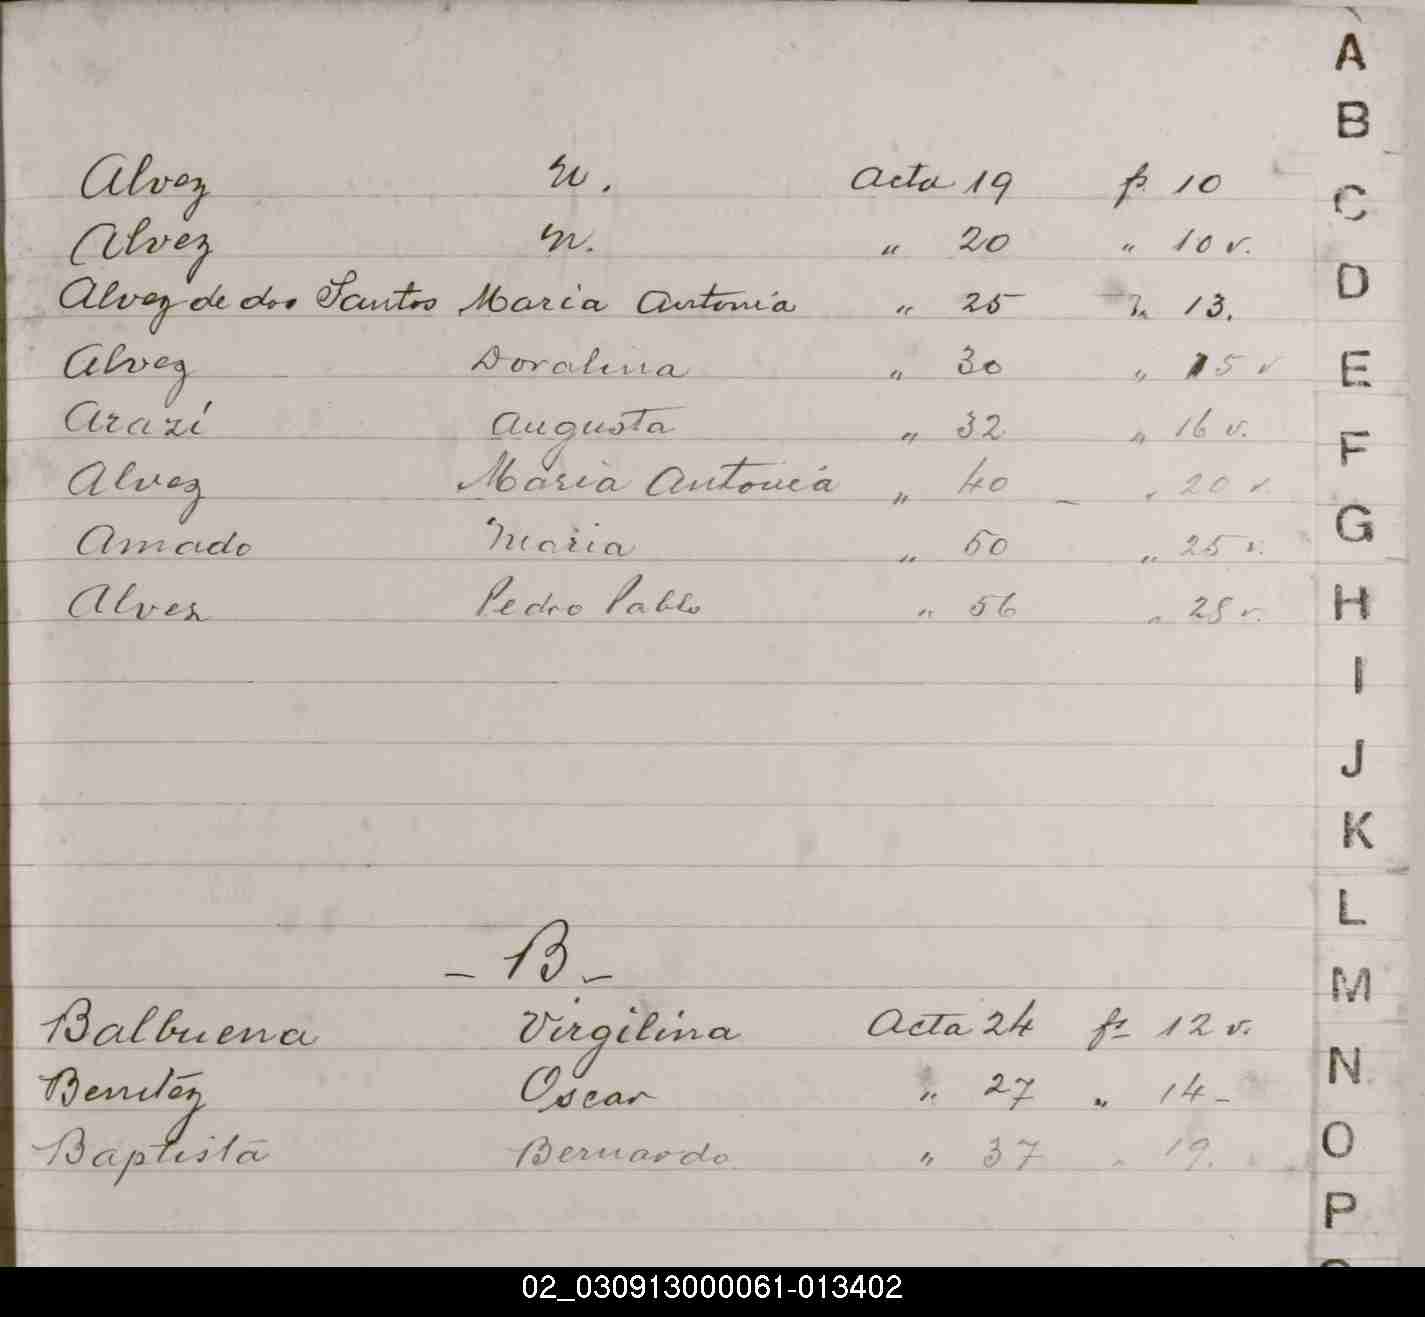 Alvez N. Acta 19 fs 10
Alvez N. " 20 " 10 v.
Alvez de dos Santos Maria Antonia " 25 " 13.
Alvez Doralina " 30 " 15 v
Arazí Augusta " 32 " 16 v.
Alvez Maria Antonia " 40 _ " 20 v.
Amado Maria " 50 " 25 v.
Alvez Pedro Pablo " 56 " 28 v.
- B -
Balbuena Virgilina Acta 24 fs 12 v.
Benitéz Oscar " 27 " 14 -
Baptista Bernardo " 37 " 19.
A
B
C
D
E
F
G
H
I
J
K
L
M
N
O
P
02_030913000061-013402